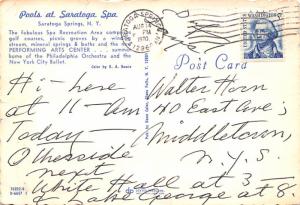 Pools at Saratoga Spa
Saratoga Springs, N. Y.
The fabulous Spa Recreation Area comp
golf courses, picnic groves by a win
stream, mineral springs & baths and the new
PERFORMING ARTS CENTER . . . summer
home of the Philadelphia Orchestra and the
New York City Ballet.
Color by
SARATOGA SPRINGS
AUG 14
PM
1970
WASHINGTON
Post Card
Hi here
at 11 Am
Today
Otherside
next
White Hall at 3 -
Lake George at 8
Walter Horn
40 East Ave
Middletown,
N. Y. S.